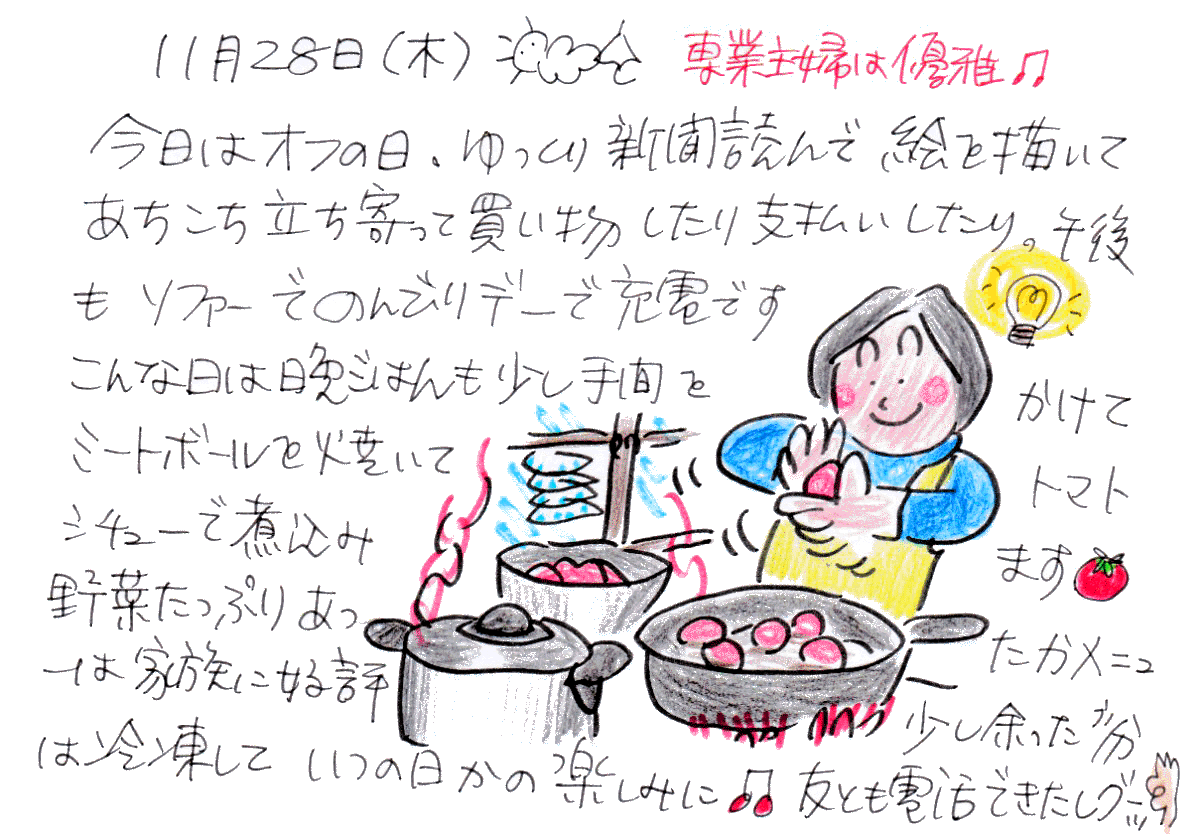 11月28日(木) 専業主婦は優雅♫
今日はオフの日、ゆっくり新聞読んで絵を描いて
あちこち立ち寄って買い物したり支払いしたり。午後
もソファーでのんびりデーで充電です
こんな日は晩ごはんも少し手間を かけて
ミートボールを焼いて トマト
シチューで煮込み ます
野菜たっぷりあっ たかメニュ
ーは家族に好評 少し余った分
は冷凍していつの日かの楽しみに♫ 友とも電話できたしグー